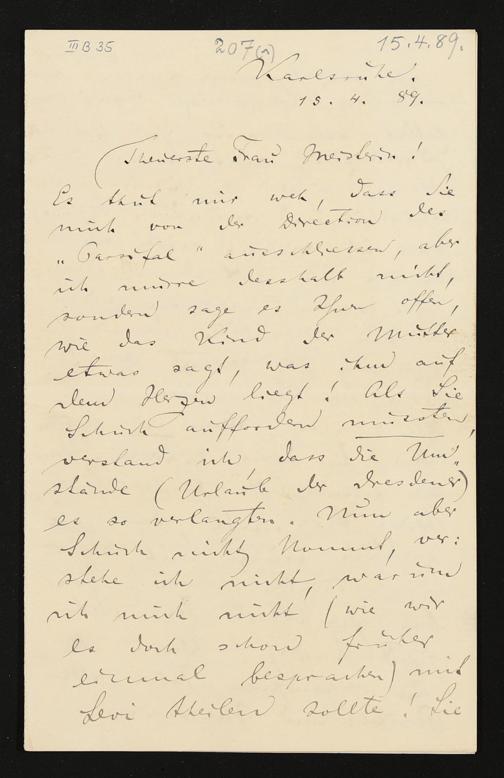 III B 35
207(a)
15.4.89.
Karlsruhe.
15. 4. 89.
Theuerste Frau Meisterin!
Es thut mir weh, dass Sie
mich von der Direction des
„Parsifal" ausschliessen, aber
ich murre desshalb nicht,
sondern sage es Ihnen offen,
wie das Kind der Mutter
etwas sagt, was ihm auf
dem Herzen liegt! Als Sie
Schuch auffordern mussten,
verstand ich, dass die Um„
stände (Urlaub der Dresdener)
es so verlangten. Nun aber
Schuch nicht kommt, ver:
stehe ich nicht, warum
ich mich nicht (wie wir
es doch schon früher
einmal besprachen) mit
Levi theilen sollte! Sie